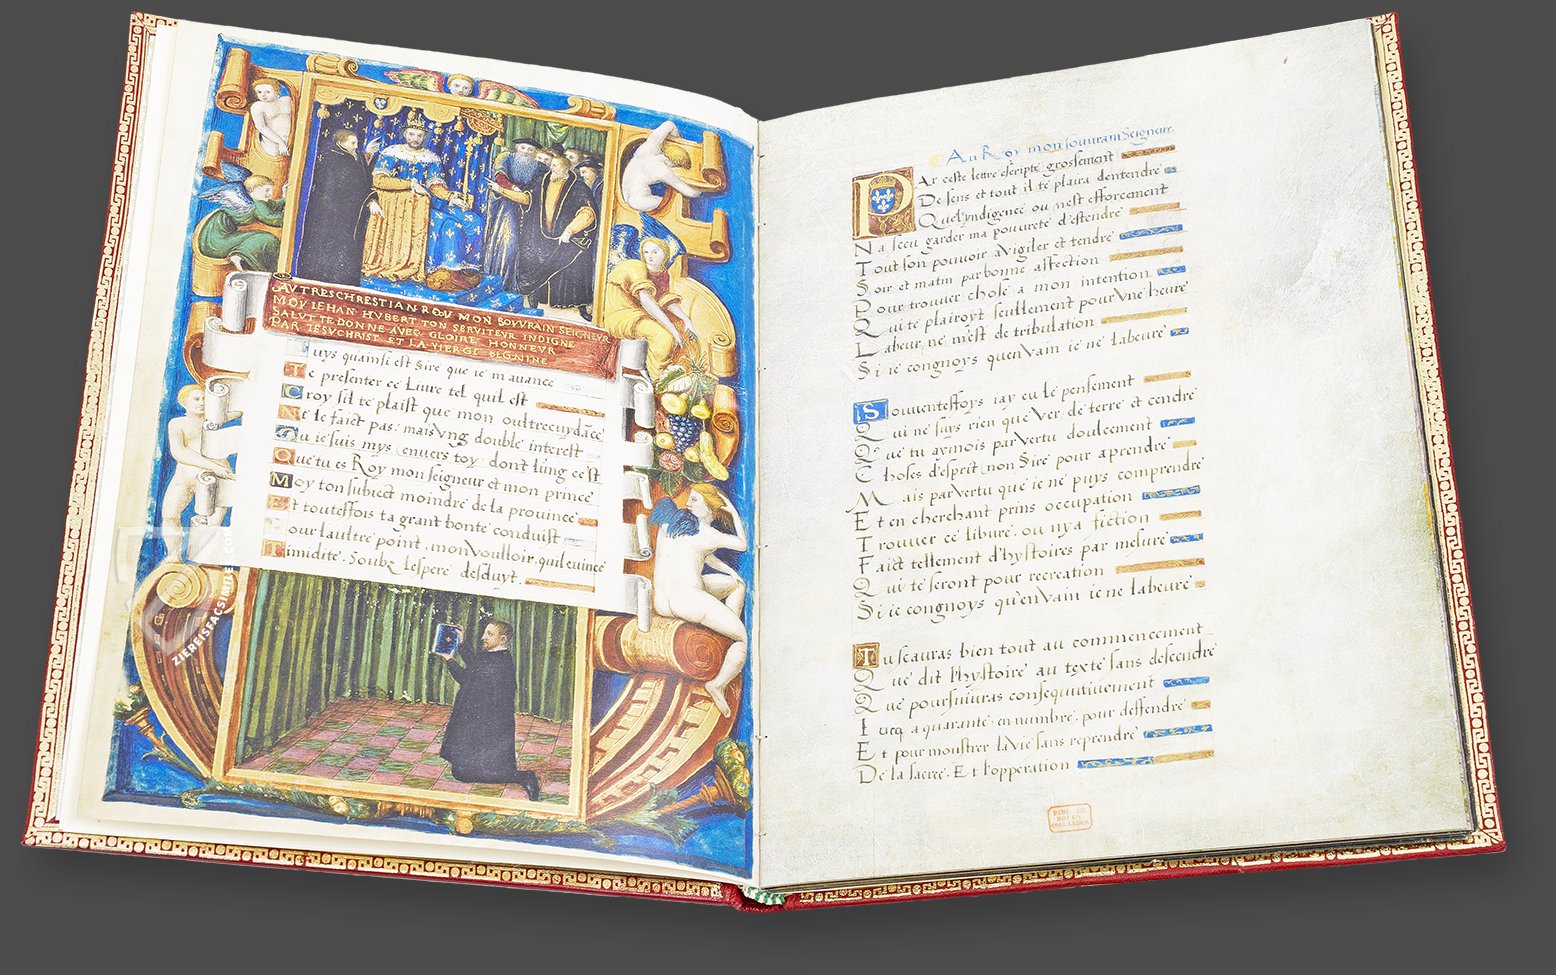 AV TRESCHRESTIAN ROY MON SOVVRAIN SEIGNEVR
MOY IEHAN HVBERT TON SERVITEVR INDIGNE
SALVT TE DONNE AVEC GLOIRE HONNEVR
PAR IESVCHRIST ET LA VIERGE BEGNINE
uys quainsi est Sire que ie m auance
Te presenter ce Liure tel quil est
Croy sil te plaist que mon oultrecuydāce
Ne le faict pas: mais Vng double interest
Ou ie suis mys (enuers toy) dont lung ce st
Que tu es Roy mon seigneur et mon prince
Moy ton subiect moindre de la prouince
Et toutesfois ta grant bonte conduist
our laultre point, mon Voulloir, quil euince
Timidite. Soubz lespere desduyt.
ZIEREISFACSIMILE.COM
Au Roy mon souurain Seigneur.
Par ceste lettre escripte grossement
De sens et tout il te plaira dentendre
Quel yndigence ou nest efforcement
Na sceu garder ma pouurete d'estendre
Tout son pouuoir a Vigiler et tendre
Soir et matin par bonne affection
Pour trouuer chose a mon intention
Qui te plairoyt seullement pour Vne heure
Labeur, ne m'est de tribulation
Si ie congnoys qu'en Vain ie ne labeure
Souuentesfoys iay eu le pensement
Qui ne suys rien que Ver de terre et cendre
Que tu aymois par Vertu doulcement
Choses d'esprit, non Sire pour aprendre
Mais par Vertu que ie ne puys comprendre
Et en cherchant prins occupation
Trouuer ce libure, ou n'y a fiction
Faict tellement d'hystoires par mesure
Qui te seront pour recreation
Si ie congnoys qu'en Vain ie ne labeure
Tu scauras bien tout au commencement
Que dit l'hystoire au texte sans descendre
Que poursuiuras consequutiuement
Iucq a quarante en numbre, pour deffendre
Et pour monstrer la Vie sans reprendre
De la sacree. Et l'opperation